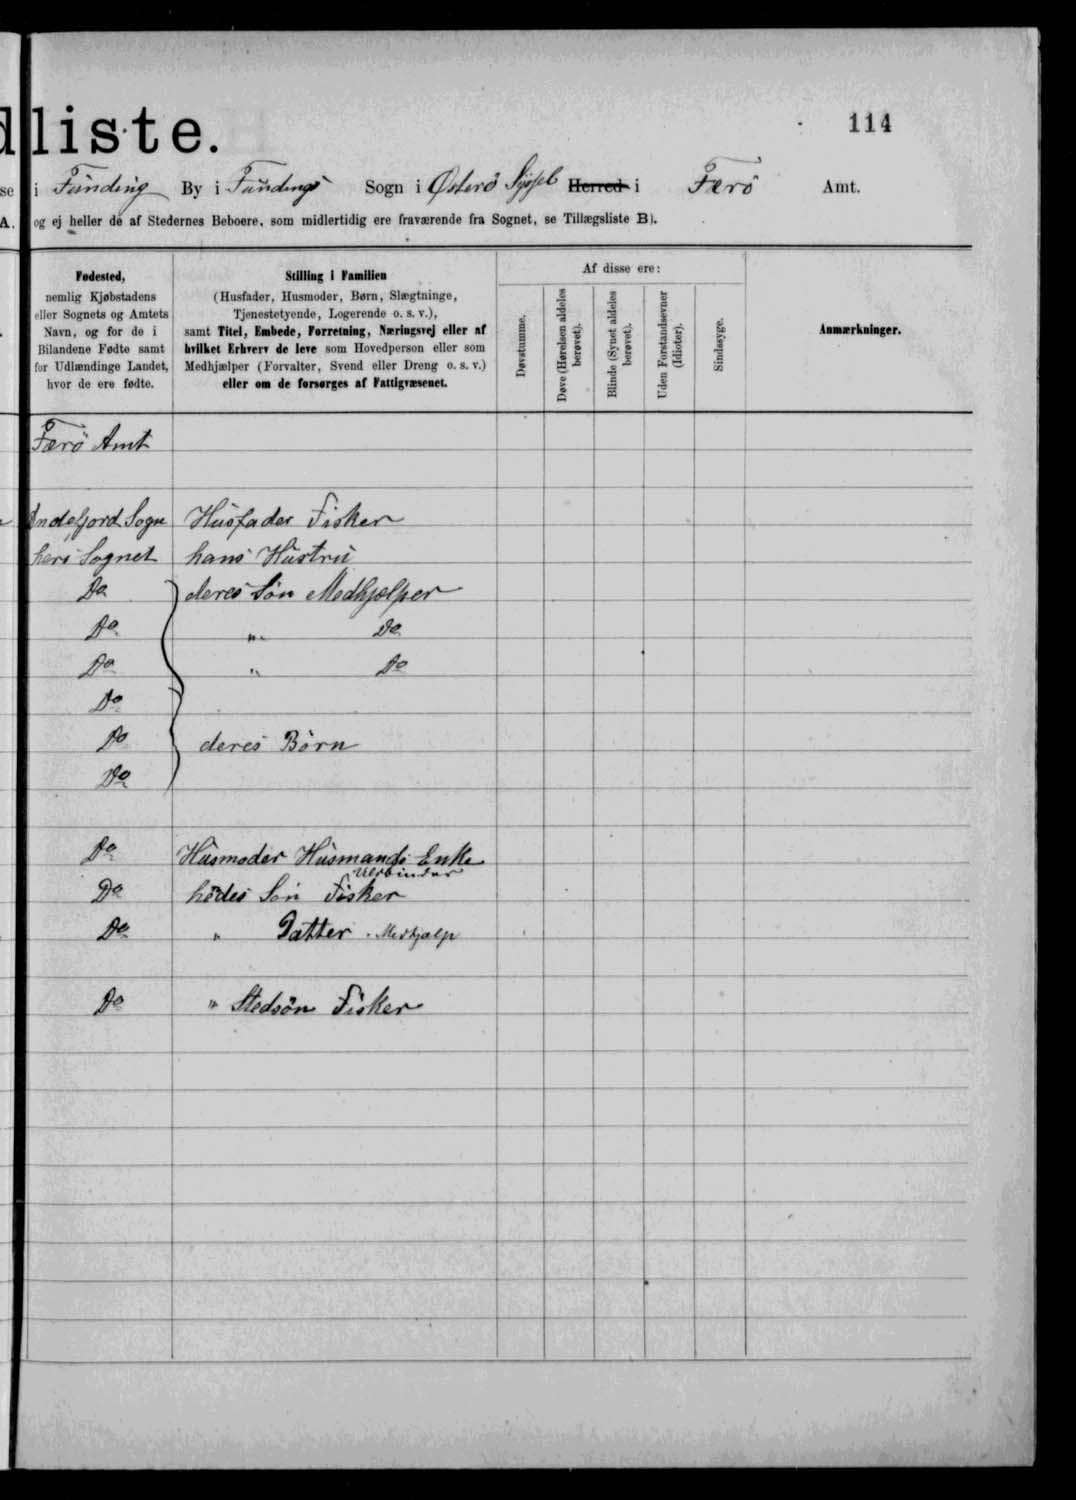 dliste.
114
se i Funding By i Fundings Sogn i Østerö Syssel Herred i Færö Amt.
A. og ej heller de af Stedernes Beboere, som midlertidig ere fraværende fra Sognet, se Tillægsliste B).
Fødested,
nemlig Kjøbstadens
eller Sognets og Amtets
Navn, og for de i
Bilandene Fødte samt
for Udlændinge Landet,
hvor de ere fødte.
Stilling i Familien
(Husfader, Husmoder, Børn, Slægtninge,
Tjenestetyende, Logerende o. s. v.),
samt Titel, Embede, Forretning, Næringsvej eller af
hvilket Erhverv de leve som Hovedperson eller som
Medhjælper (Forvalter, Svend eller Dreng o. s. v.)
eller om de forsørges af Fattigvæsenet.
Af disse ere:
Døvstumme.
Døve (Hørelsen aldeles
berøvet).
Blinde (Synet aldeles
berøvet).
Uden Forstandsevner
(Idioter).
Sindssyge.
Anmærkninger.
Færö Amt
Andefjord Sogn Husfader Fisker
hers Sognet hans Hustru
Do deres Sön Medhjælper
Do " Do
Do " Do
Do
Do deres Börn
Do
Do Husmoder Husmands Enke
Uldbinder
Do hendes Sön Fisker
Do " Datter. Medhjælp
Do " Stedsön Fisker